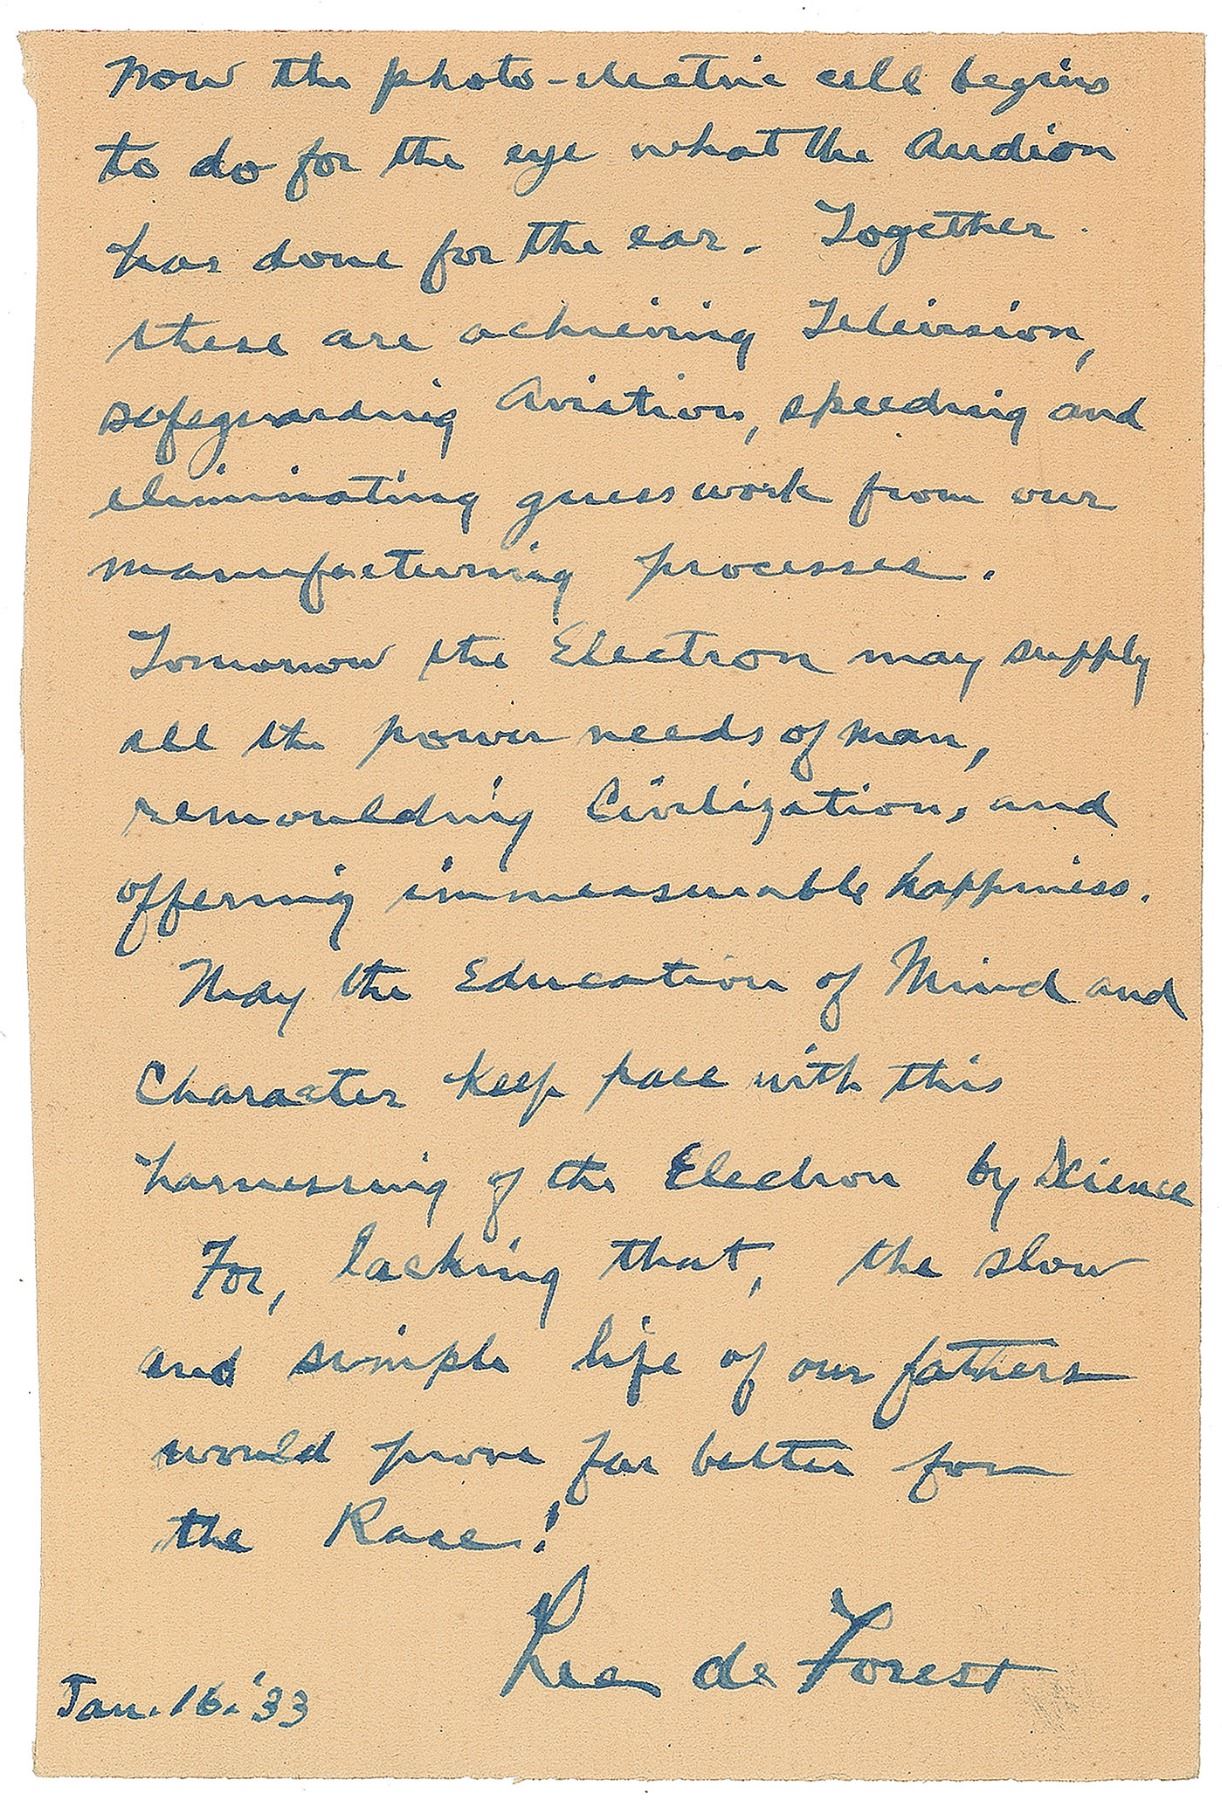 Now the photo-electric cell begins
to do for the eye what the Audion
has done for the ear. Together
these are achieving Television,
safeguarding Aviation, speeding and
eliminating guess work from our
manufacturing processes.
Tomorrow the Electron may supply
all the power needs of man,
remoulding Civilization, and
offering immeasurable happiness.
May the Education of Mind and
Character keep pace with this
harnessing of the Electron by Science
For, lacking that, the slow
and simple life of our fathers
would prove far better for
the Race!
Lee de Forest
Jan. 16. '33